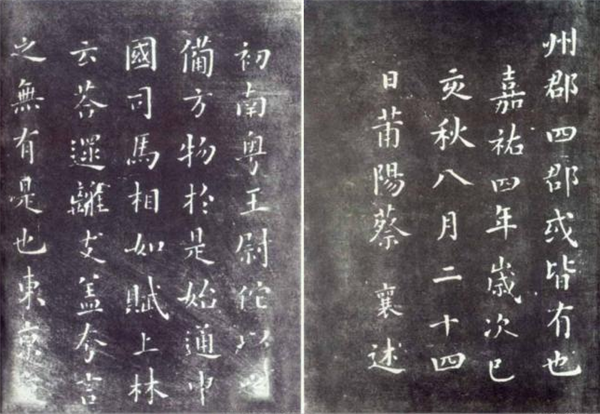 州郡四郡或皆有也
嘉祐四年歲次己
亥秋八月二十四
日莆陽蔡襄述
初南粤王尉佗以
備方物於是始通中
國司馬相如賦上林
云荅遝離支蓋夸言
之無有是也東京